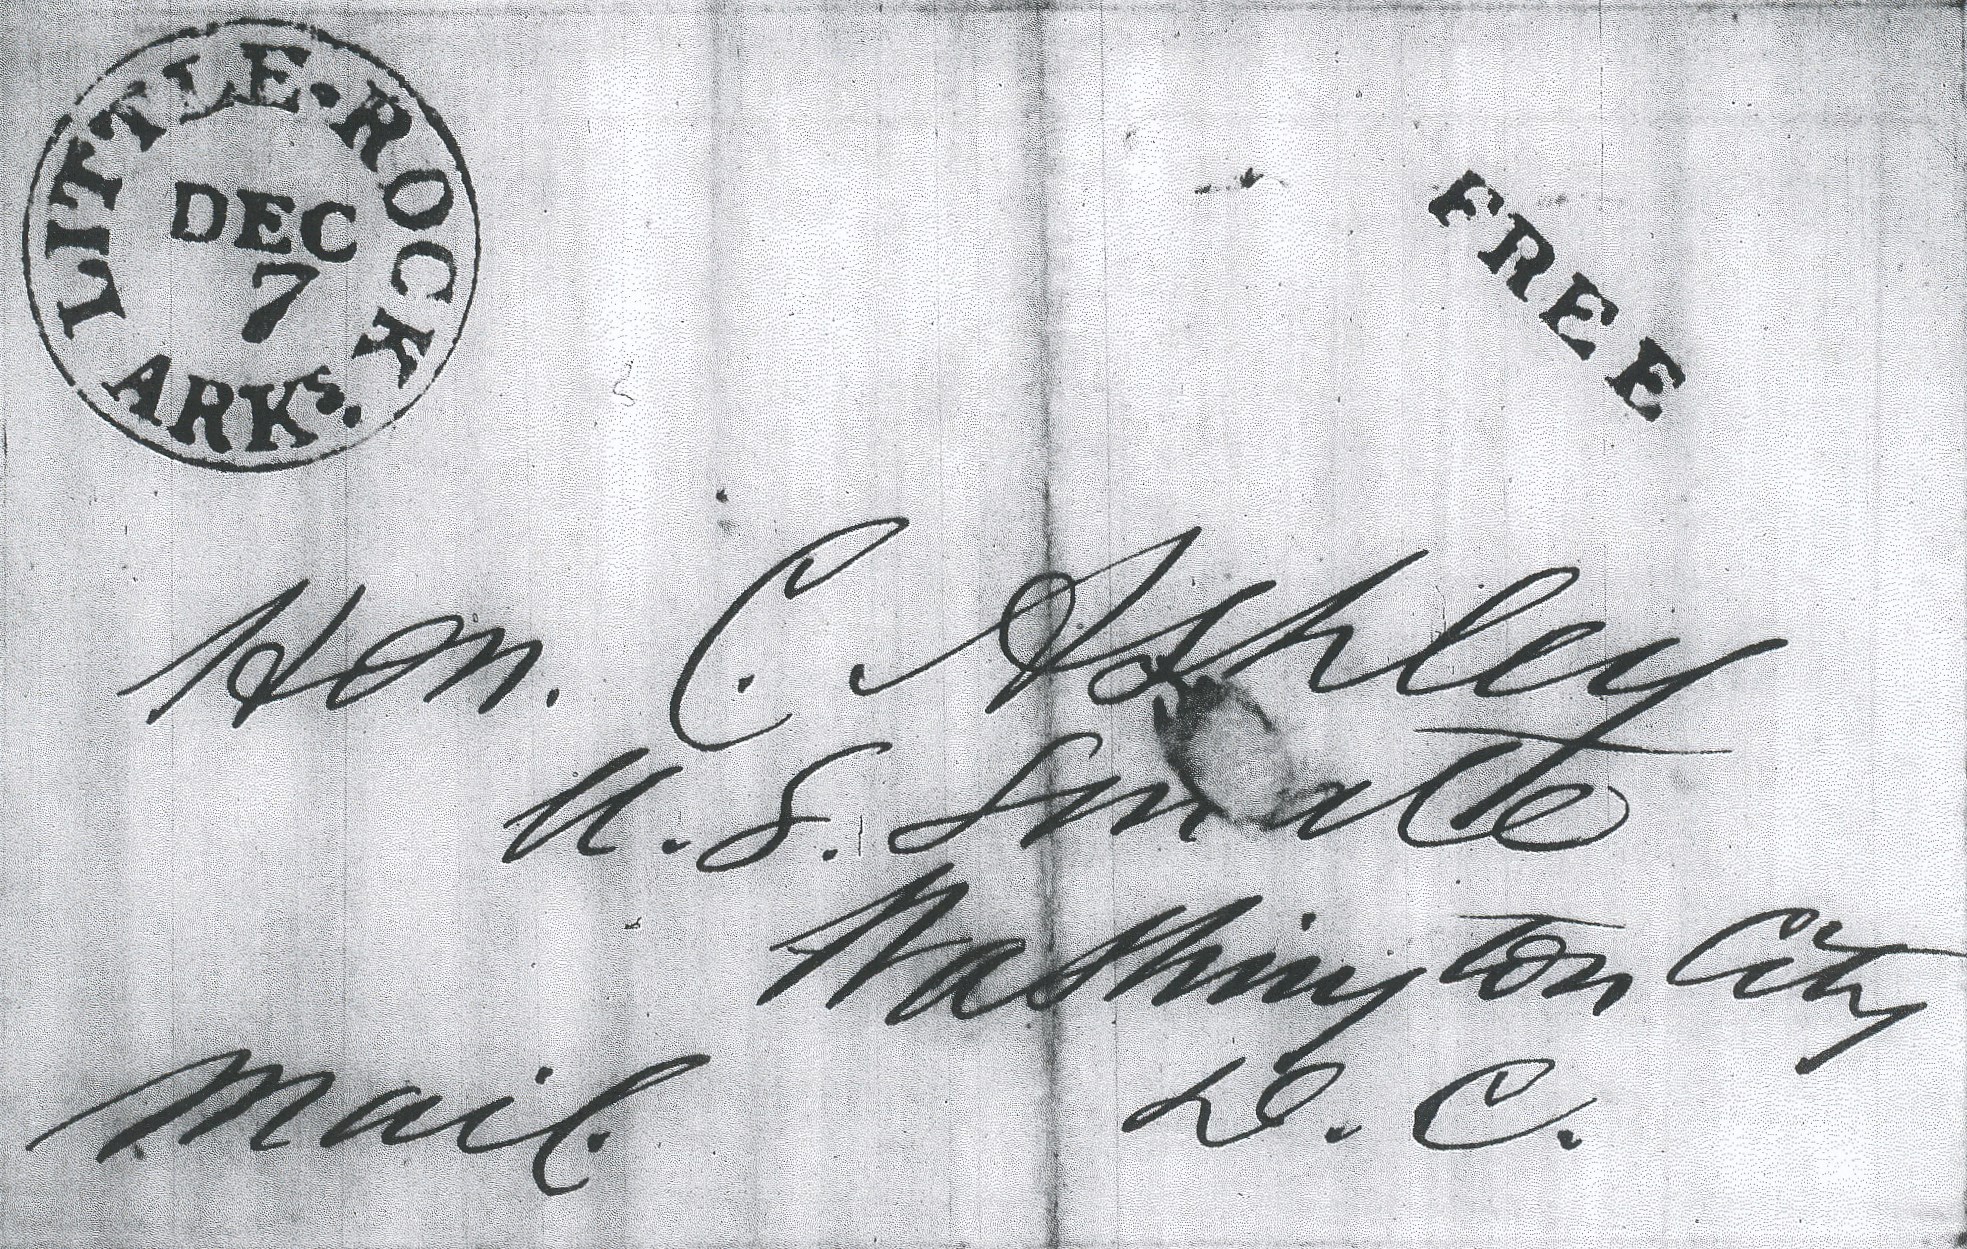 LITTLE·ROCK
DEC
7
ARKs.
FREE
Hon. C. Ashley
U. S. Senate
Washington City
D. C.
Mail.